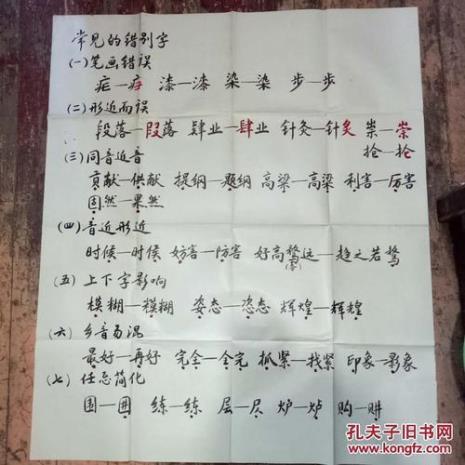 常见的错别字
(一)笔画错误
疟—疟 漆—漆 染—染 步—歩
(二)形近而误
段落—叚落 肄业—肆业 针灸—针炙 祟—崇
抢—抡
(三)同音近音
贡献—供献 提纲—题纲 高粱—高梁 利害—厉害
固然—果然
(四)音近形近
时候—时侯 妨害—防害 好高骛远—趋之若鹜
(五)上下字影响
模糊—模糊 姿态—恣态 辉煌—辉煌
(六)乡音易混
最好—再好 完全—全完 抓紧—找紧 印象—影象
(七)任意简化
图— 练—练 层—尺 炉—炉 购—
孔夫子旧书网
kongfz.com